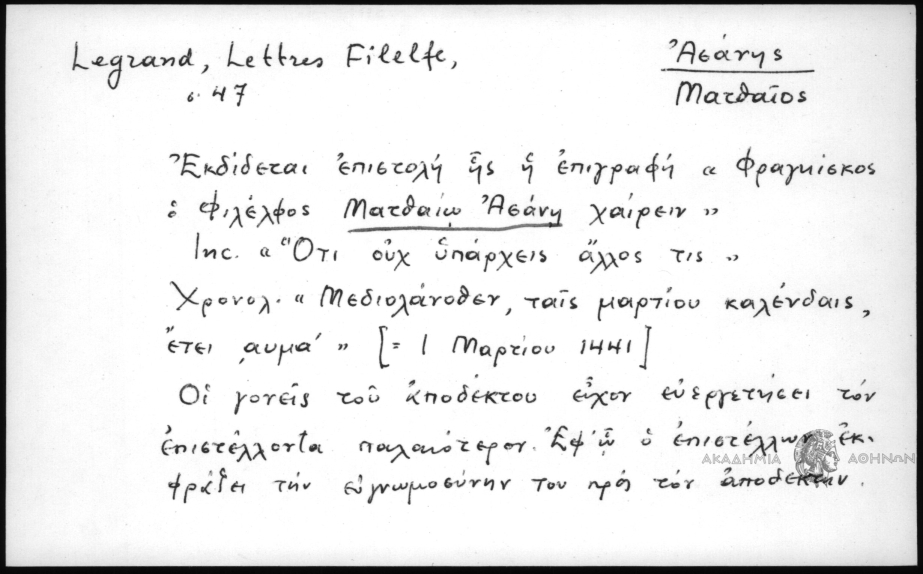 Legrand, Lettres Filelfe,
σ. 47
Ἀσάνης
Ματθαῖος
Ἐκδίδεται ἐπιστολή ἧς ἡ ἐπιγραφή « Φραγκίσκος
ὁ Φιλέλφος Ματθαίῳ Ἀσάνῃ χαίρειν »
Inc. « Ὅτι οὐχ ὑπάρχεις ἄλλος τις »
Χρονολ. « Μεδιολάνοθεν, ταῖς μαρτίου καλένδαις,
ἔτει ͵αυμα´ » [= 1 Μαρτίου 1441]
Οἱ γονεῖς τοῦ ἀποδέκτου εἶχον εὐεργετήσει τόν
ἐπιστέλλοντα παλαιότερον. Ἐφ' ᾧ ὁ ἐπιστέλλων ἐκ-
φράζει τήν εὐγνωμοσύνην του πρός τόν ἀποδέκτην.
ΑΚΑΔΗΜΙΑ ΑΘΗΝΩΝ